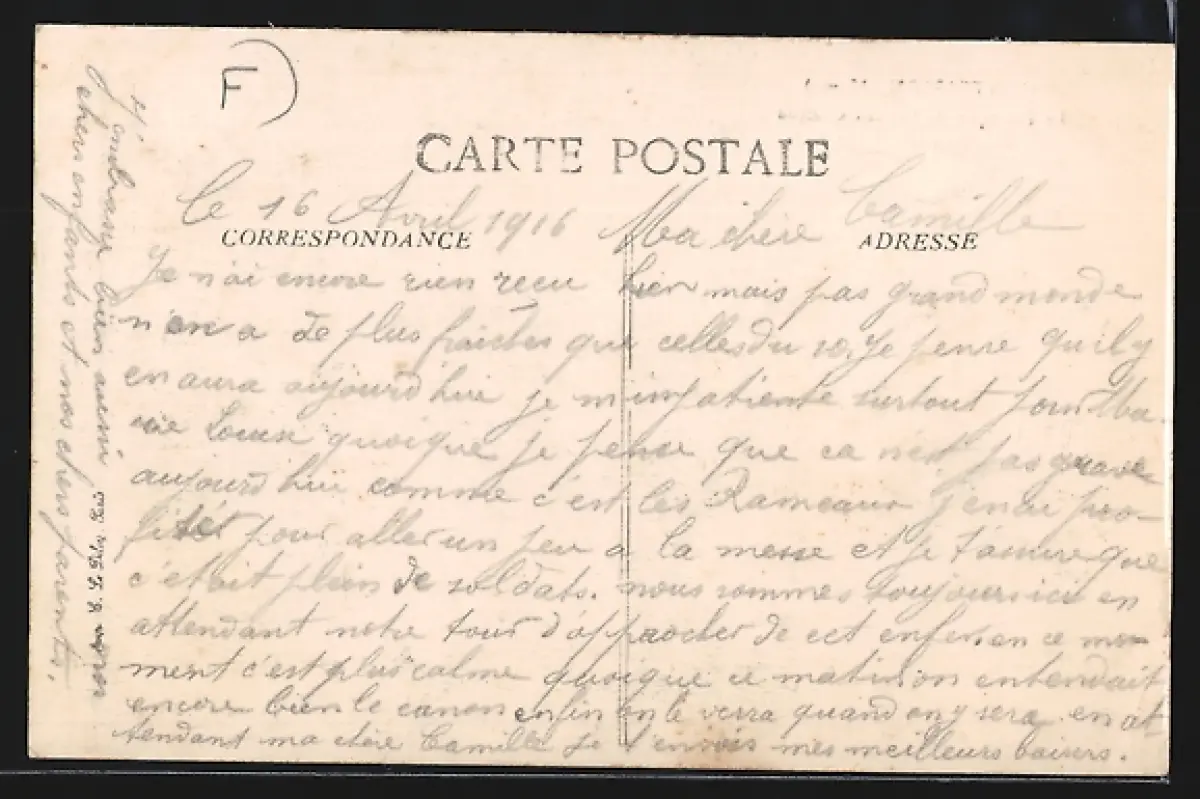 F
CARTE POSTALE
le 16 Avril 1916 Ma chère Camille
CORRESPONDANCE
ADRESSE
Je n'ai encore rien recu hier mais pas grand monde
n'en a de plus fraiches que celles du 10. Je pense qu'il y
en aura aujourd'hui je m'impatiente surtout pour Ma-
rie Louise quoique je pense que ca n'est pas grave
aujourd'hui comme c'est les Rameaux j'en ai pro-
fiter pour aller un peu a la messe et je t'assure que
c'etait plein de soldats. nous sommes toujours ici en
attendant notre tour d'approcher de cet enfer. en ce mo-
ment c'est plus calme quoique ce matin on entendait
encore bien le canon enfin on le verra quand on y sera, en at
tendant ma chère Camille je t'envois mes meilleurs baisers.
J'embrasse bien aussi
chers enfants et nos chers parents.